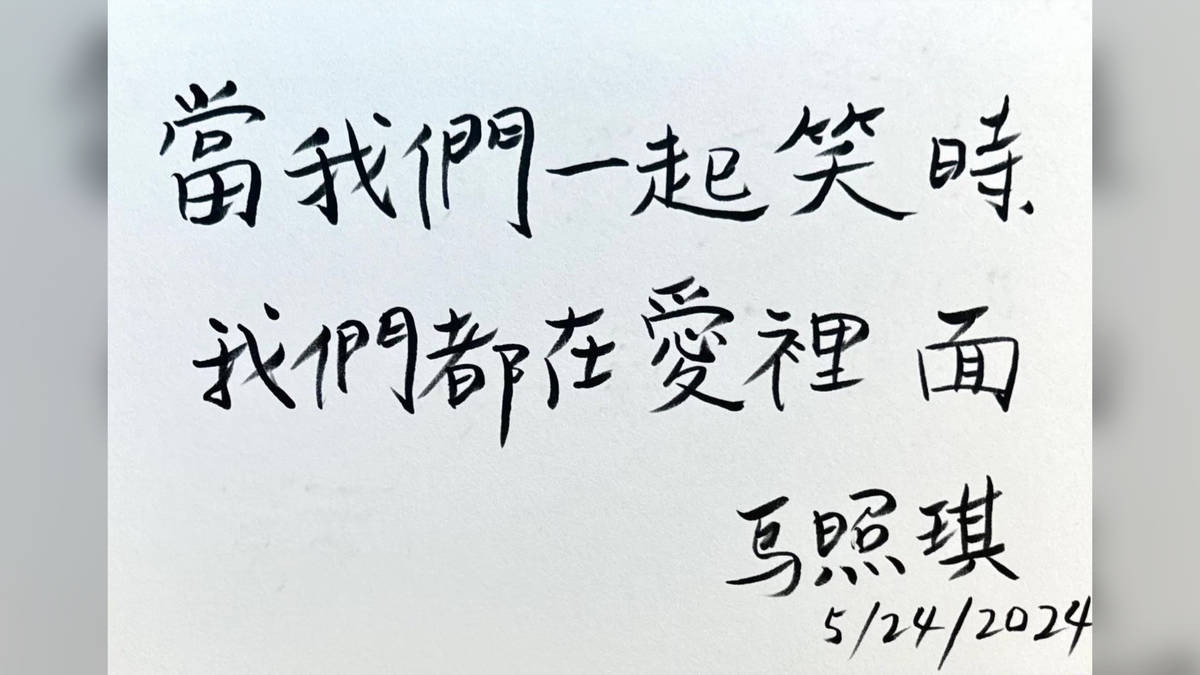 當我們一起笑時
我們都在愛裡面
马照琪
5/24/2024